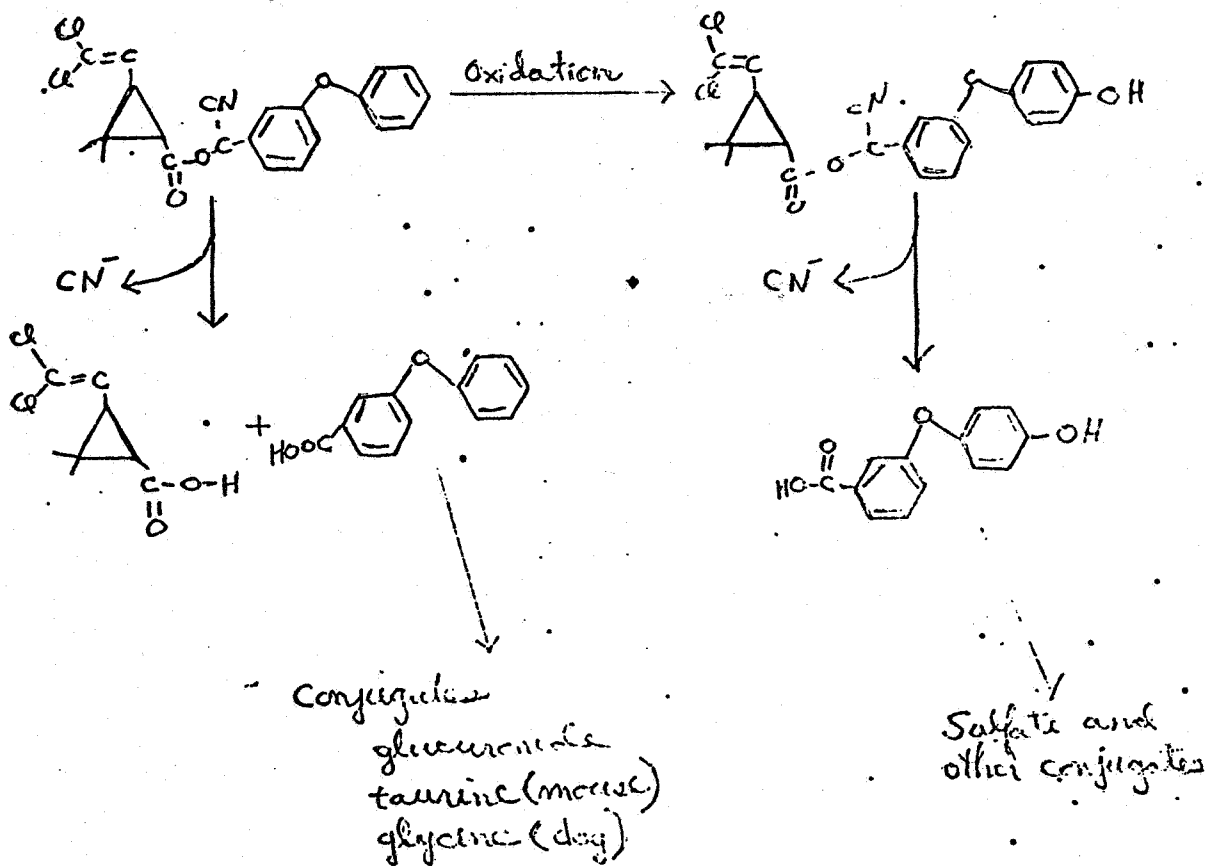 Cl
C=C
Cl
CN
O
C
O
C
O
Oxidation
Cl
C=C
Cl
CN
O
OH
C
O
C
O
CN⁻
CN⁻
Cl
C=C
Cl
C-O-H
O
+
O
HOOC
O
OH
O
HO-C
Conjugates
glucuronide
taurine (mouse)
glycine (dog)
Sulfate and
other conjugates